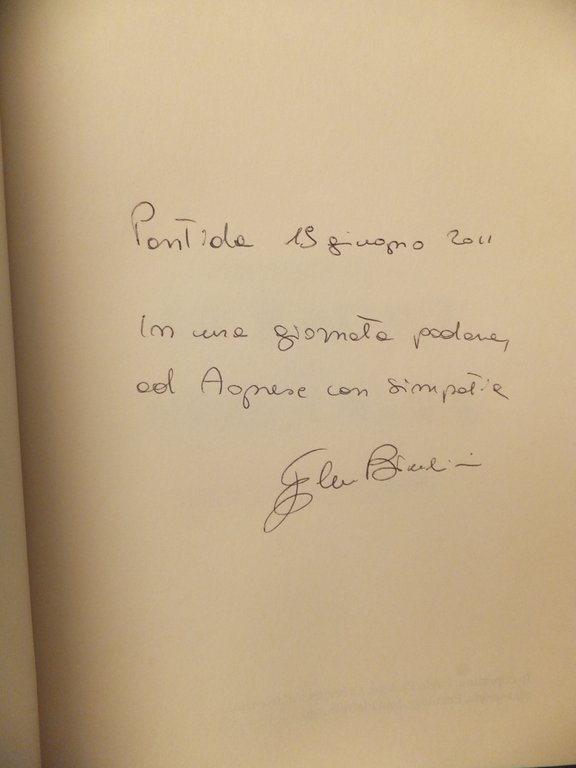 Pontida 19 giugno 2011
In una giornata padana,
ad Agnese con simpatia